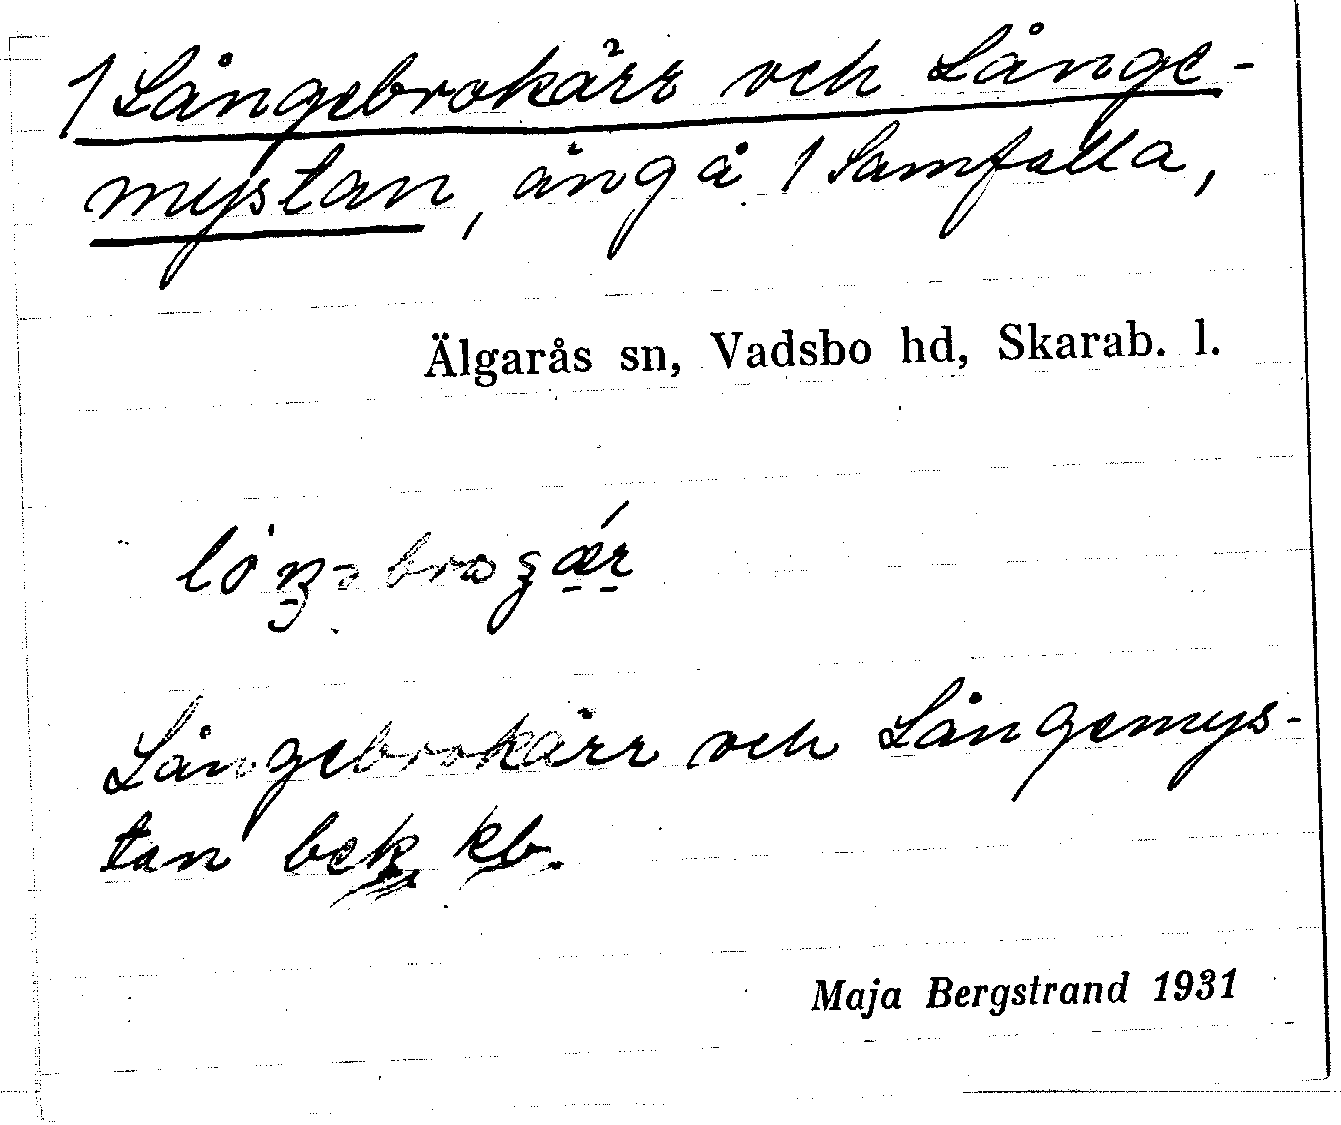 /Långebrokärr och Långe-
mystan, äng å /Samfälla,
Älgarås sn, Vadsbo hd, Skarab. l.
Långebrokärr och Långemys-
tan bek kb.
Maja Bergstrand 1931